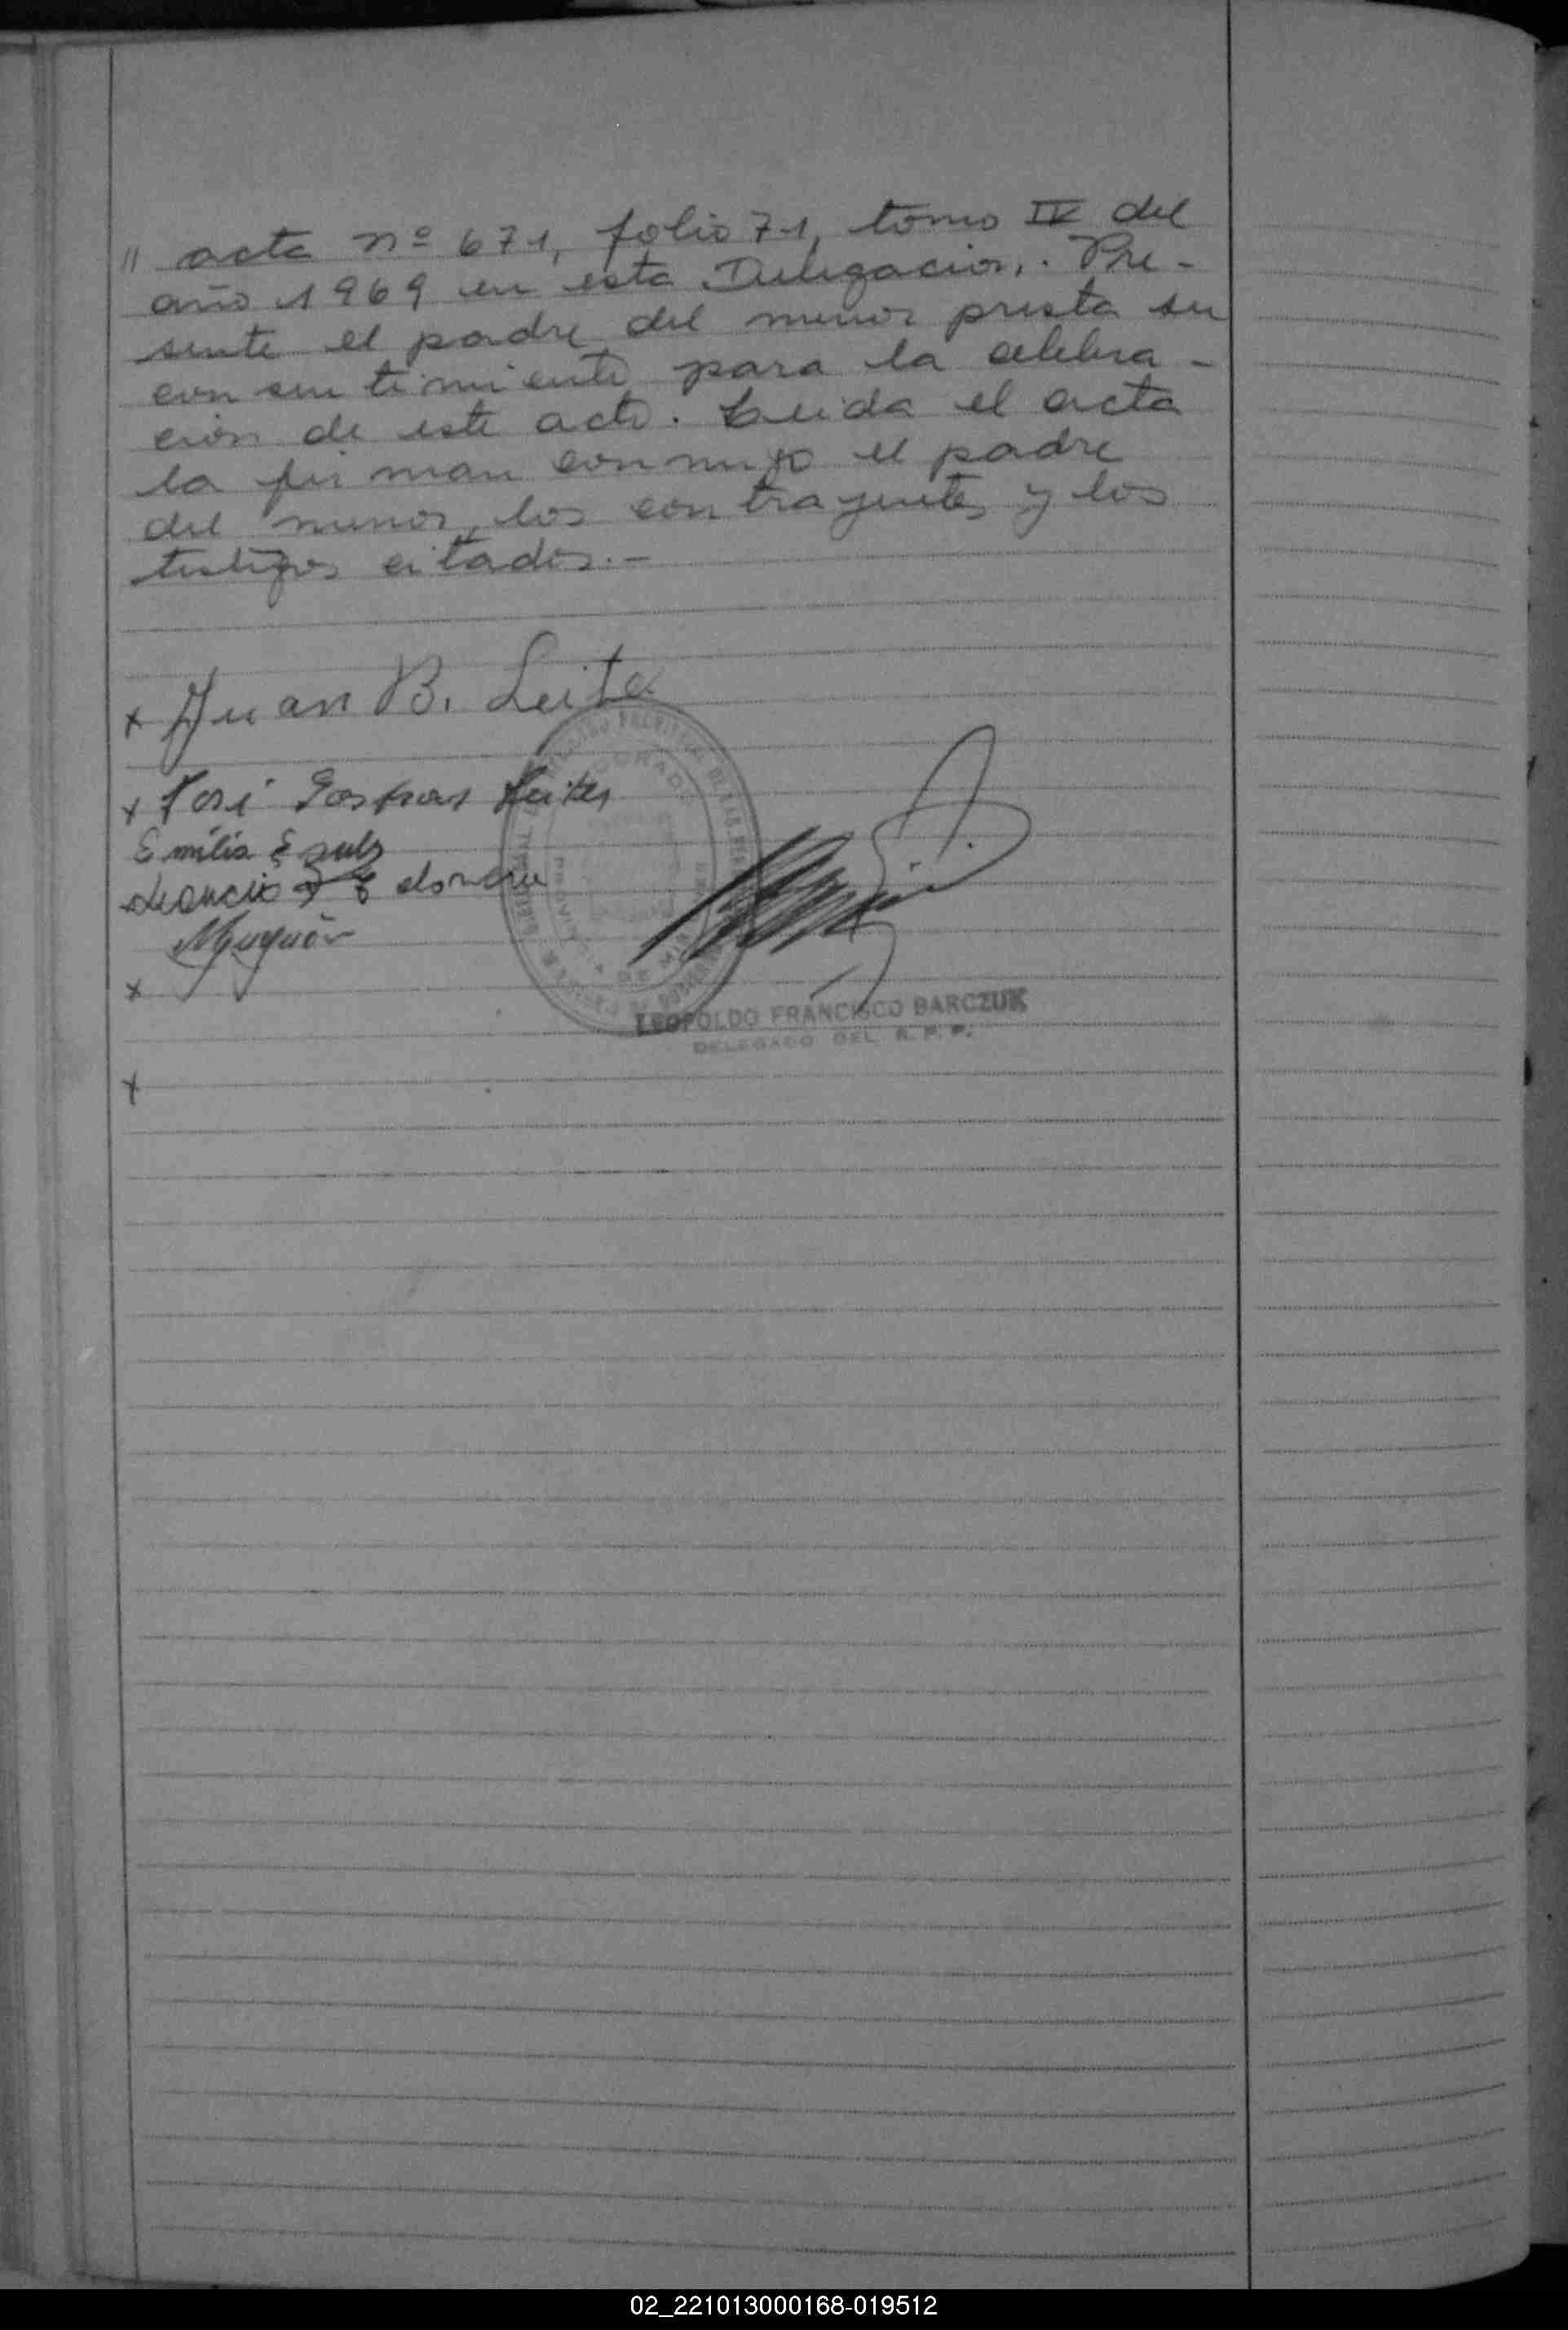 " acta nº 671, folio 71, tomo IV del
año 1969 en esta Delegacion.. Pre-
sente el padre del menor presta su
consentimiento para la celebra-
cion de este acto. Leida el acta
la firman conmigo el padre
del menor, los contrayentes y los
testigos citados.-
x Juan B. Leites
x José Gaspar Leites
Emilia
x
x
DORADO
PROVINCIA DE MISIONES
LEOPOLDO FRANCISCO BARCZUK
DELEGADO DEL R. P. P.
02_221013000168-019512